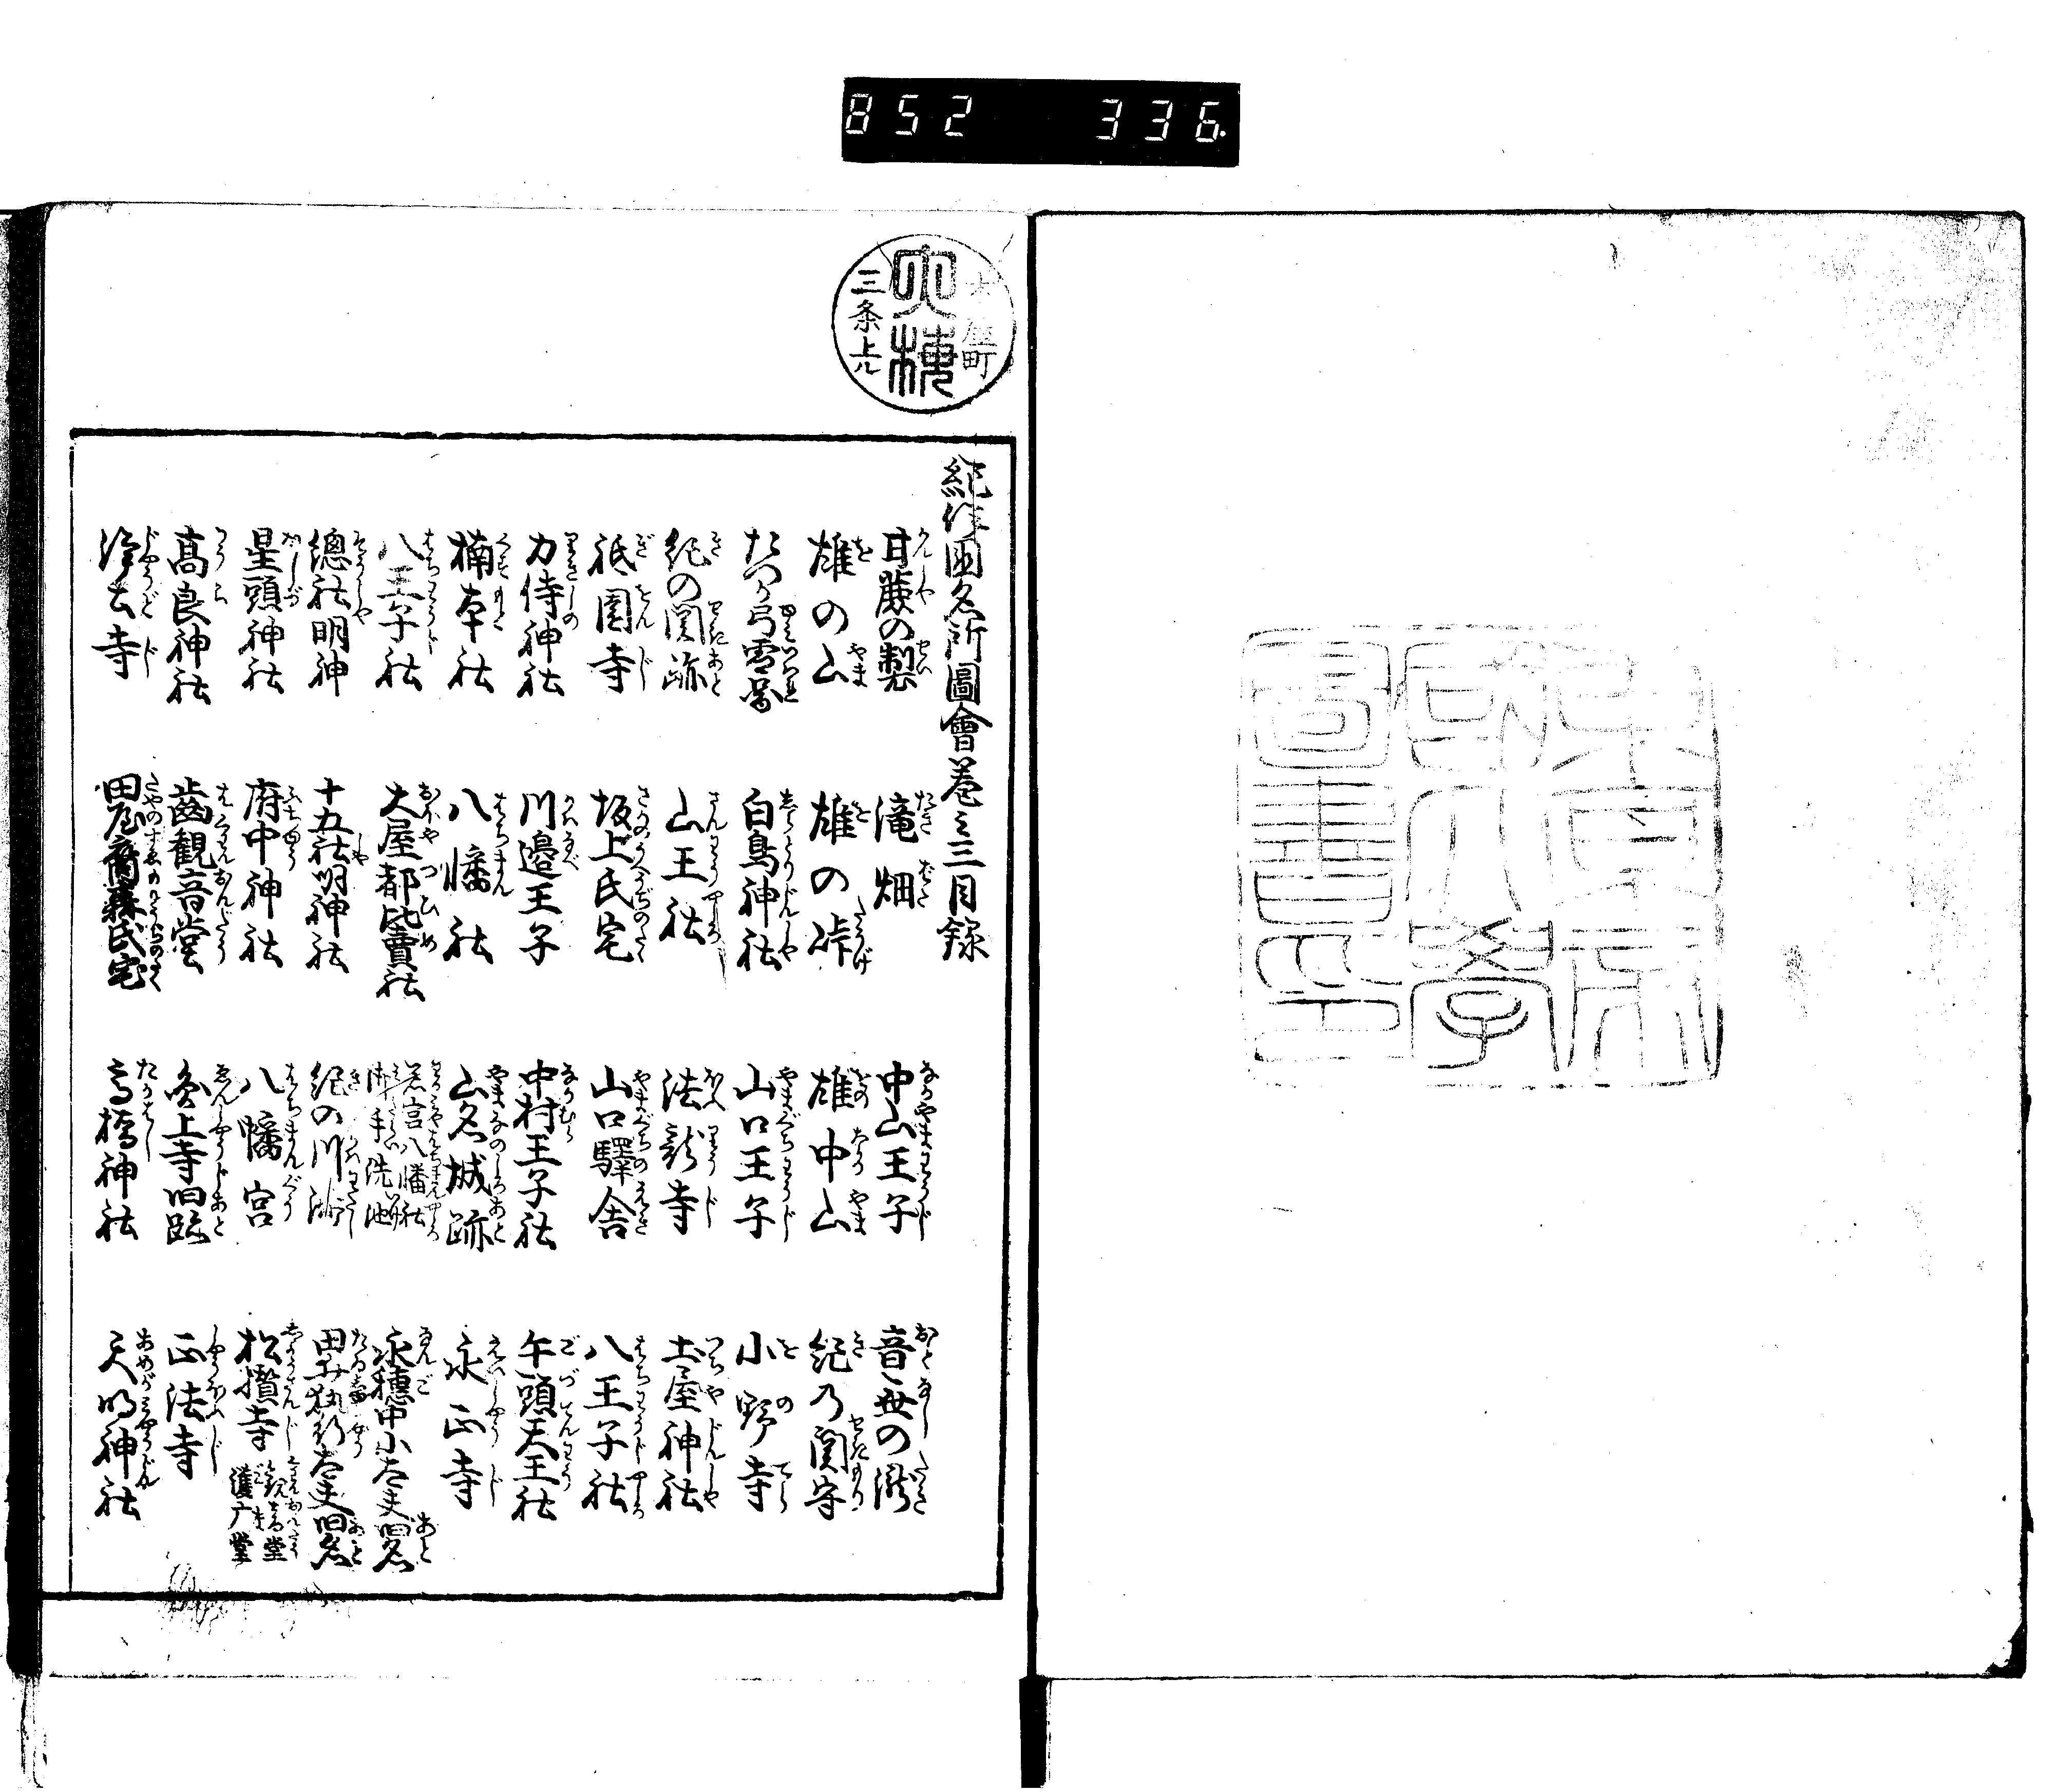 852 336
木屋町
三条上ル
紀伊国名所圖會巻之三目録
甘蔗の製 滝畑 中山王子 音無の滝
雄の山 雄の峠 雄中山 紀乃関守
たつか弓雪 白鳥神社 山口王子 小野寺
紀の関跡 山王社 法龍寺 土屋神社
祇園寺 坂上氏宅 山口驛舎 八王子社
力侍神社 川邉王子 中村王子社 午頭天王社
楠本社 八幡社 山名城跡 永正寺
八王子社 大屋都比賣社 若宮八幡社 御手洗池 永穂中小太夫旧名
總社明神 十五社明神社 紀の川渡 田井執行太夫旧名
星頭神社 府中神社 八幡宮 松攅寺 観音堂 護广堂
髙良神社 齒観音堂 上寺旧跡 正法寺
浄土寺 田屋 氏宅 高橋神社 天明神社
京都帝大學圖書之印